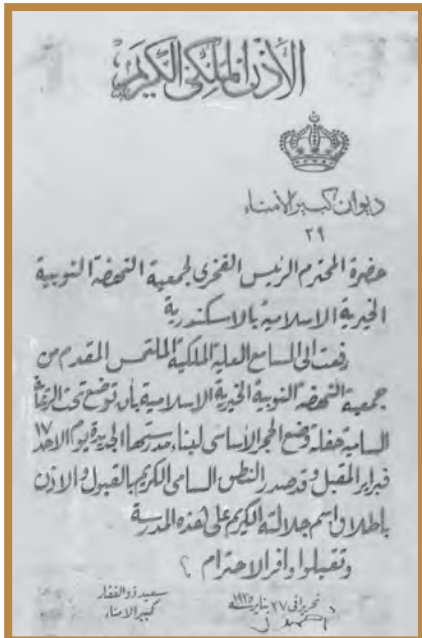 الأذن الملكي الكريم
ديوان كبير الأمناء
٢٩
حضرة المحترم الرئيس الفخري لجمعية النهضة النوبية
الخيرية الاسلامية بالاسكندرية
رفعت الى المسامع العلية الملكية الملتمس المقدم من
جمعية النهضة النوبية الخيرية الاسلامية بأن توضع تحت الرعاية
السامية حفلة وضع الحجر الأساسى لبناء مدرستها الجديدة يوم الاحد ١٧
فبراير المقبل وقد صدر النطق السامى الكريم بالقبول والاذن
باطلاق اسم جلالته الكريم على هذه المدرسة
وتفضلوا وافر الاحترام
تحريرا فى ٢٧ يناير سنة ١٩٢٥
سعيد ذو الفقار
كبير الامناء